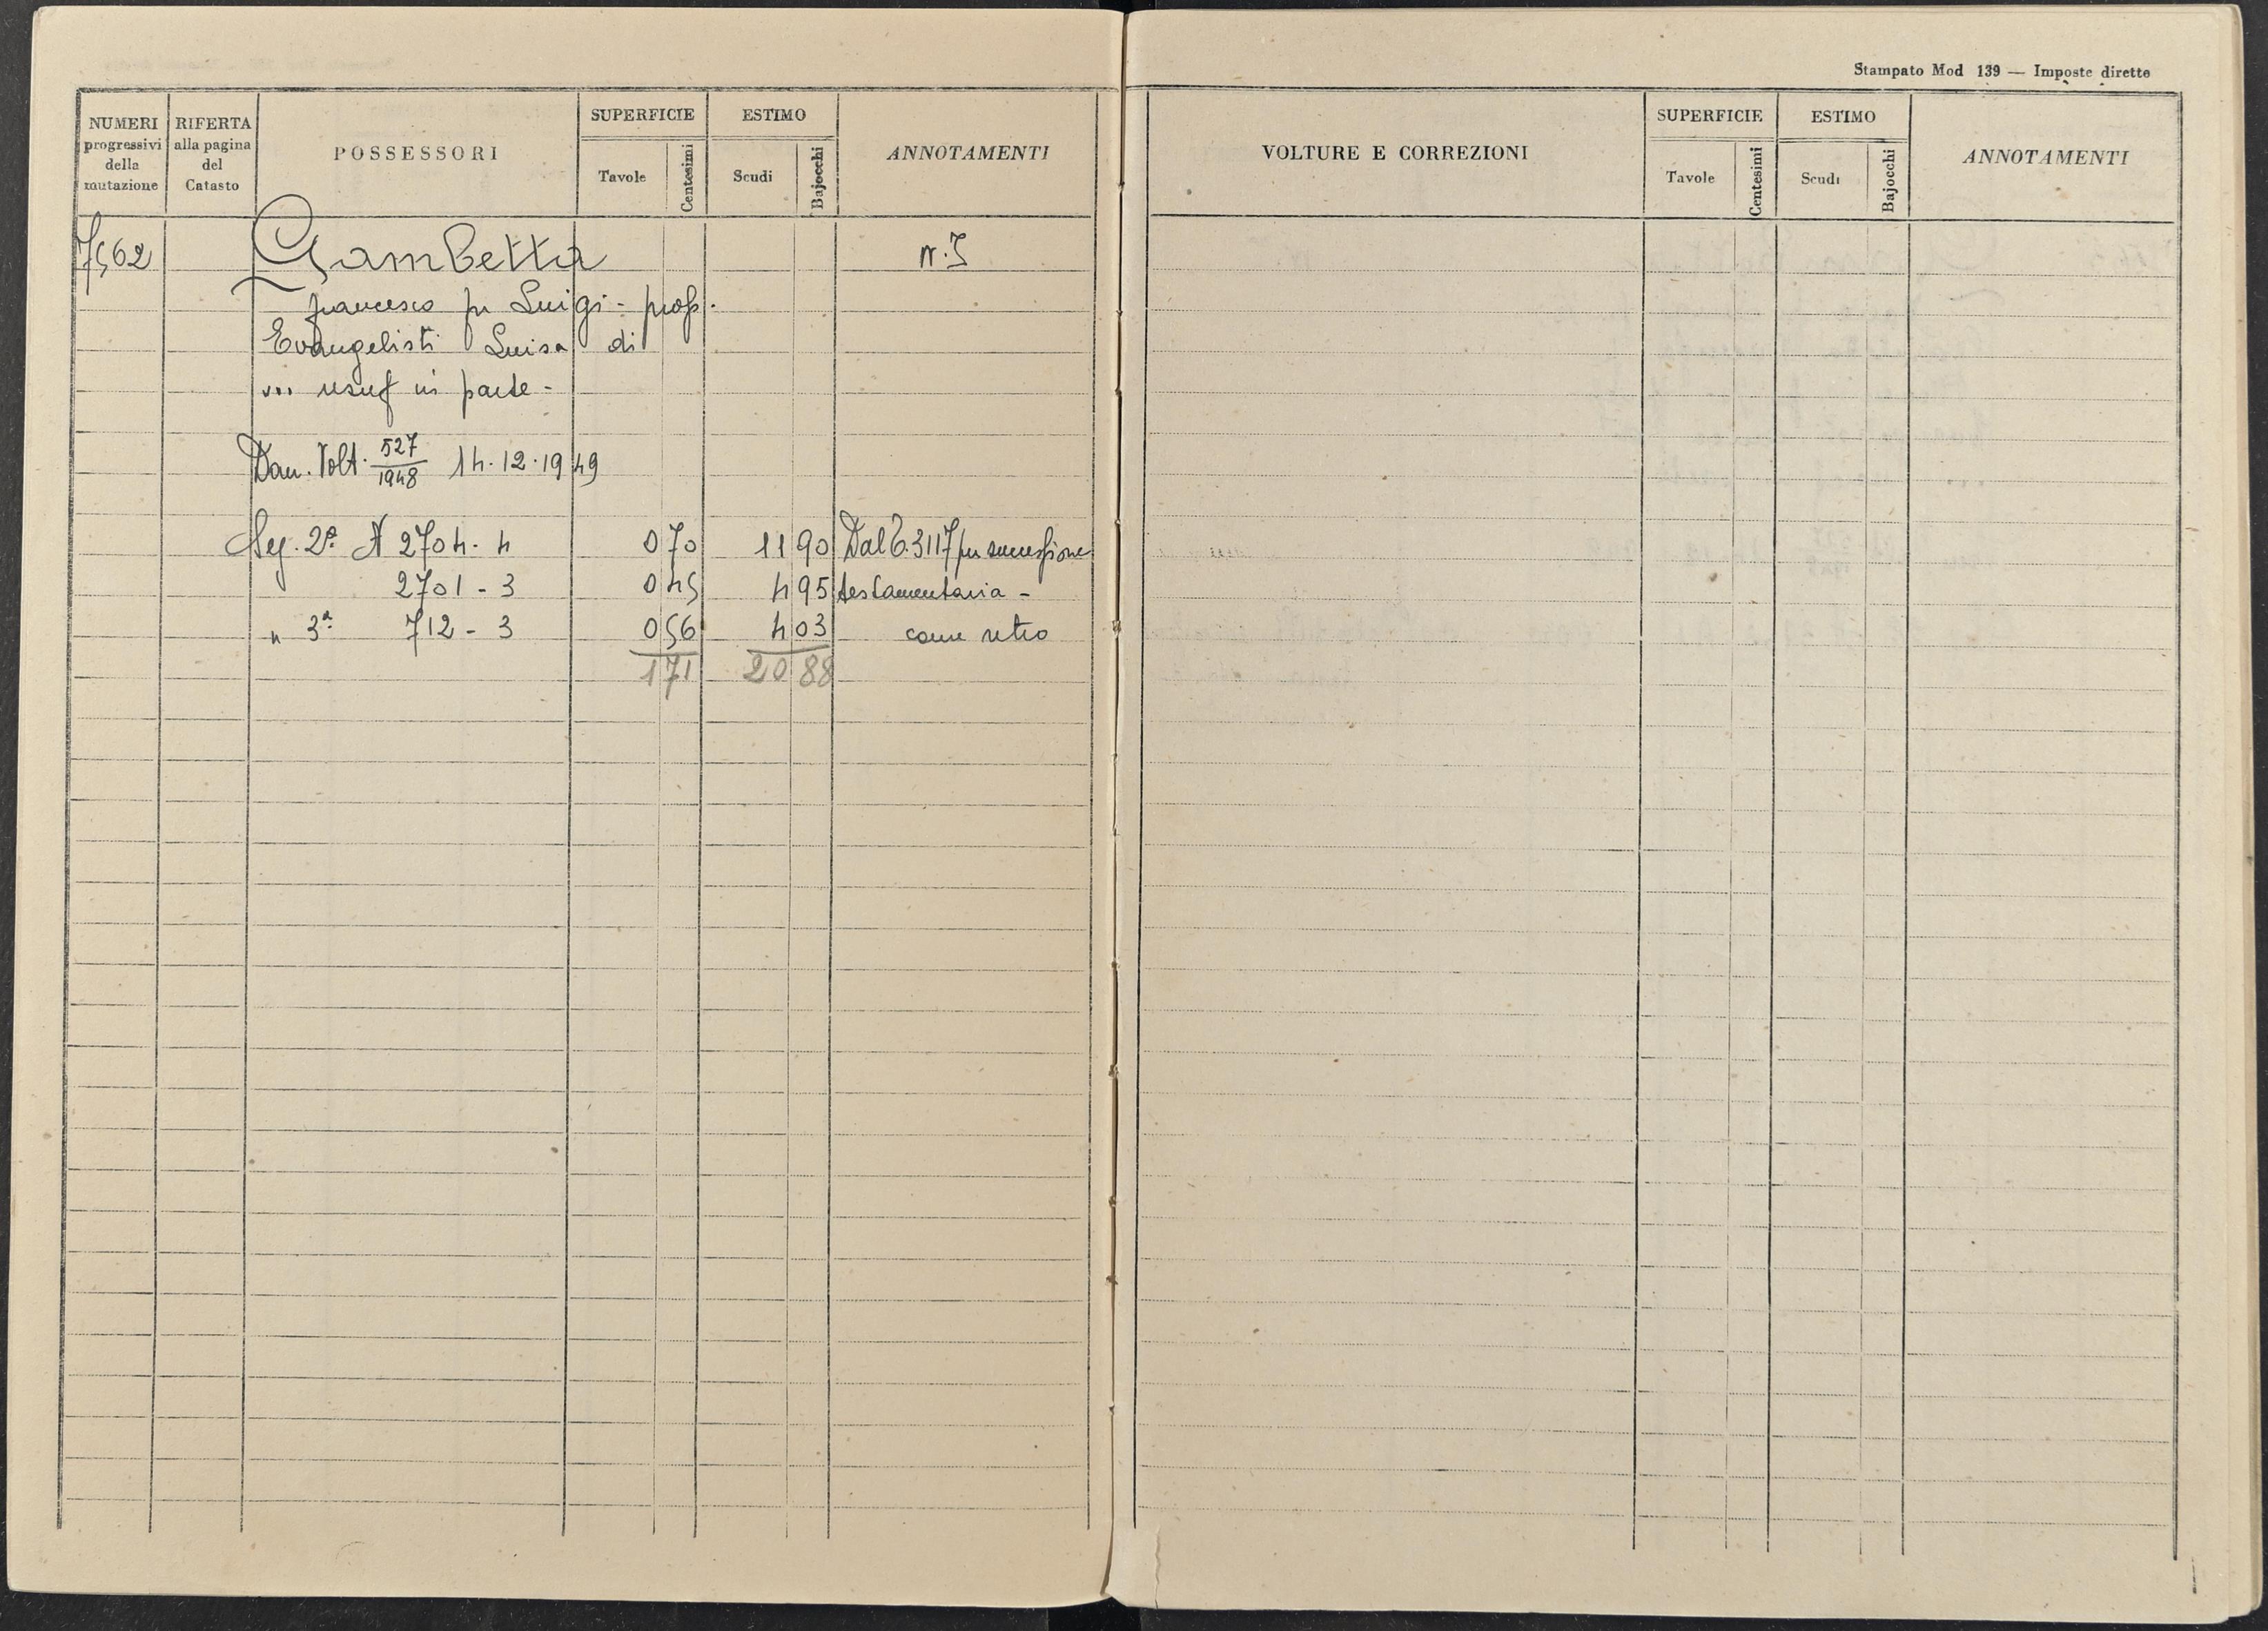 Stampato Mod 139 — Imposte dirette
NUMERI progressivi della mutazione
RIFERTA alla pagina del Catasto
POSSESSORI
SUPERFICIE
Tavole
Centesimi
ESTIMO
Scudi
Bajocchi
ANNOTAMENTI
7562 Gambetta n. 5
francesco fu Luigi - prop.
Evangelisti Luisa di
... usuf in parte -
Dom. Volt. 527/1948 14.12.1949
Sez. 2ª A 2704. 4 0 70 11 90 Dal C. 3117 per successione
2701 - 3 0 45 4 95 testamentaria -
" 3ª 712 - 3 0 56 4 03 come retro
1 71 20 88
VOLTURE E CORREZIONI
SUPERFICIE
Tavole
Centesimi
ESTIMO
Scudi
Bajocchi
ANNOTAMENTI